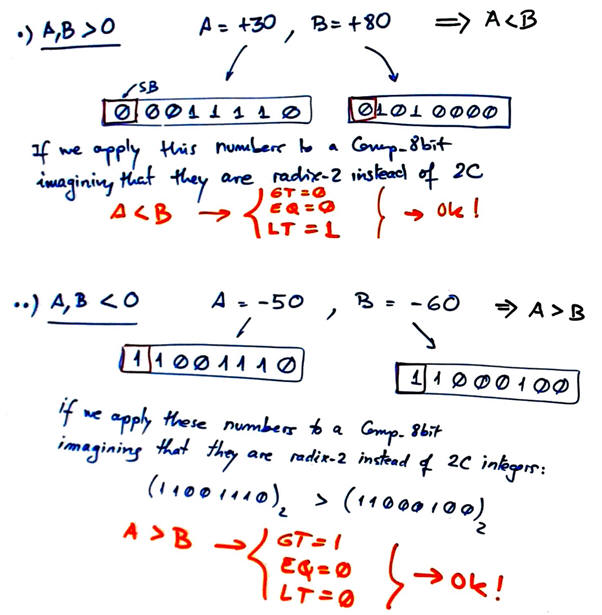 •) A,B > 0 A = +30 , B = +80 ⟹ A < B
SB
0 0 0 1 1 1 1 0 0 1 0 1 0 0 0 0
If we apply this numbers to a Comp_8bit
imagining that they are radix-2 instead of 2C
A < B → { GT = 0 EQ = 0 LT = 1 } → Ok!
••) A, B < 0 A = -50 , B = -60 ⟹ A > B
1 1 0 0 1 1 1 0 1 1 0 0 0 1 0 0
if we apply these numbers to a Comp_8bit
imagining that they are radix-2 instead of 2C integers:
(11001110)₂ > (11000100)₂
A > B → { GT = 1 EQ = 0 LT = 0 } → Ok!